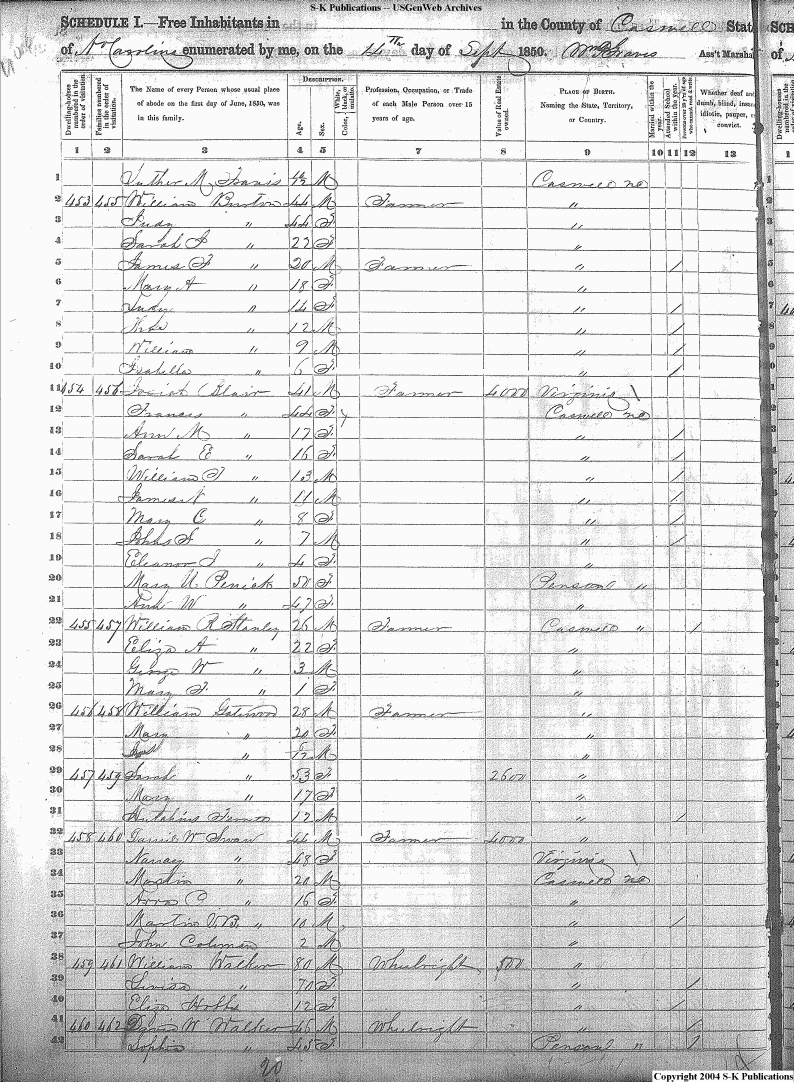 S-K Publications -- USGenWeb Archives
SCHEDULE I.—Free Inhabitants in in the County of Caswell State
of N Carolina enumerated by me, on the 4th day of Sept 1850. Wm Graves Ass't Marshal
Dwelling-houses numbered in the order of visitation.
Families numbered in the order of visitation.
The Name of every Person whose usual place of abode on the first day of June, 1850, was in this family.
Description.
Age.
Sex.
Color, White, black, or mulatto.
Profession, Occupation, or Trade of each Male Person over 15 years of age.
Value of Real Estate owned.
Place of Birth. Naming the State, Territory, or Country.
Married within the year.
Attended School within the year.
Whether deaf and dumb, blind, insane, idiotic, pauper, or convict.
1 2 3 4 5 6 7 8 9 10 11 12 13
1 Luther M 4/12 M Caswell nc
2 453 455 William Burton 44 M Farmer "
3 Judy " 44 F "
4 Sarah " 22 F "
5 James F " 20 M Farmer " /
6 Mary A " 18 F "
7 Judy " 14 F " /
8 " 12 M " /
9 William " 9 M " /
10 Isabella " 6 F " /
11 454 456 Blair 41 M Farmer 4000 Virginia \
12 Frances " 44 F Caswell nc
13 Ann M " 17 F " /
14 Sarah E " 16 F " /
15 William " 13 M " /
16 James " 11 M " /
17 Mary C " 8 F " /
18 John " 7 M " /
19 Eleanor " 4 F "
20 Mary U. Penick 50 F Person "
21 Ann W " 47 F "
22 455 457 William R Stanley 26 M Farmer Caswell " /
23 Eliza A " 22 F "
24 George W " 3 M "
25 Mary F. " 1 F "
26 456 458 William Gatewood 28 M Farmer "
27 Mary " 20 F "
28 " M
29 457 459 Sarah " 53 F 2600 "
30 Mary " 17 F "
31 12 M " /
32 458 460 W Swan 44 M Farmer 4000 "
33 Nancy " 48 F Virginia \
34 Martin " 20 M Caswell nc
35 C " 16 F "
36 Martin V.B. " 10 M " /
37 John Coleman 2 M "
38 459 461 William Walker 80 M Wheelwright 500 "
39 " 70 F " /
40 Eliza Hobbs 12 F " /
41 460 462 W. Walker 46 M Wheelwright " /
42 Sophia " 45 F Person " /
20
Copyright 2004 S-K Publications